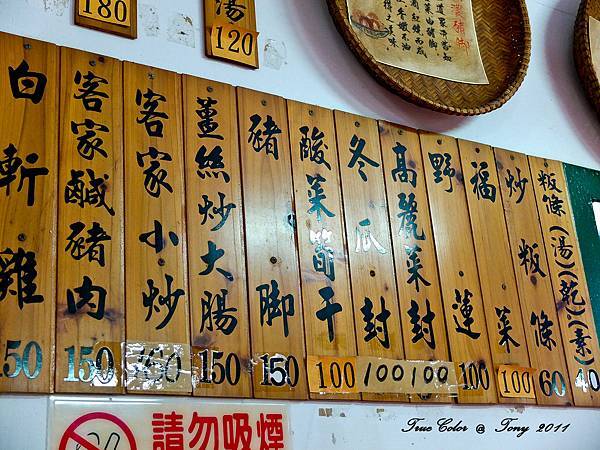 180
湯
120
粄條(湯)(乾)(素)
40
炒粄條
60
福菜
100
野蓮
100
高麗菜封
100
冬瓜封
100
酸菜筍干
100
豬脚
150
薑絲炒大腸
150
客家小炒
客家鹹豬肉
150
白斬雞
50
請勿吸煙
True Color @ Tony 2011